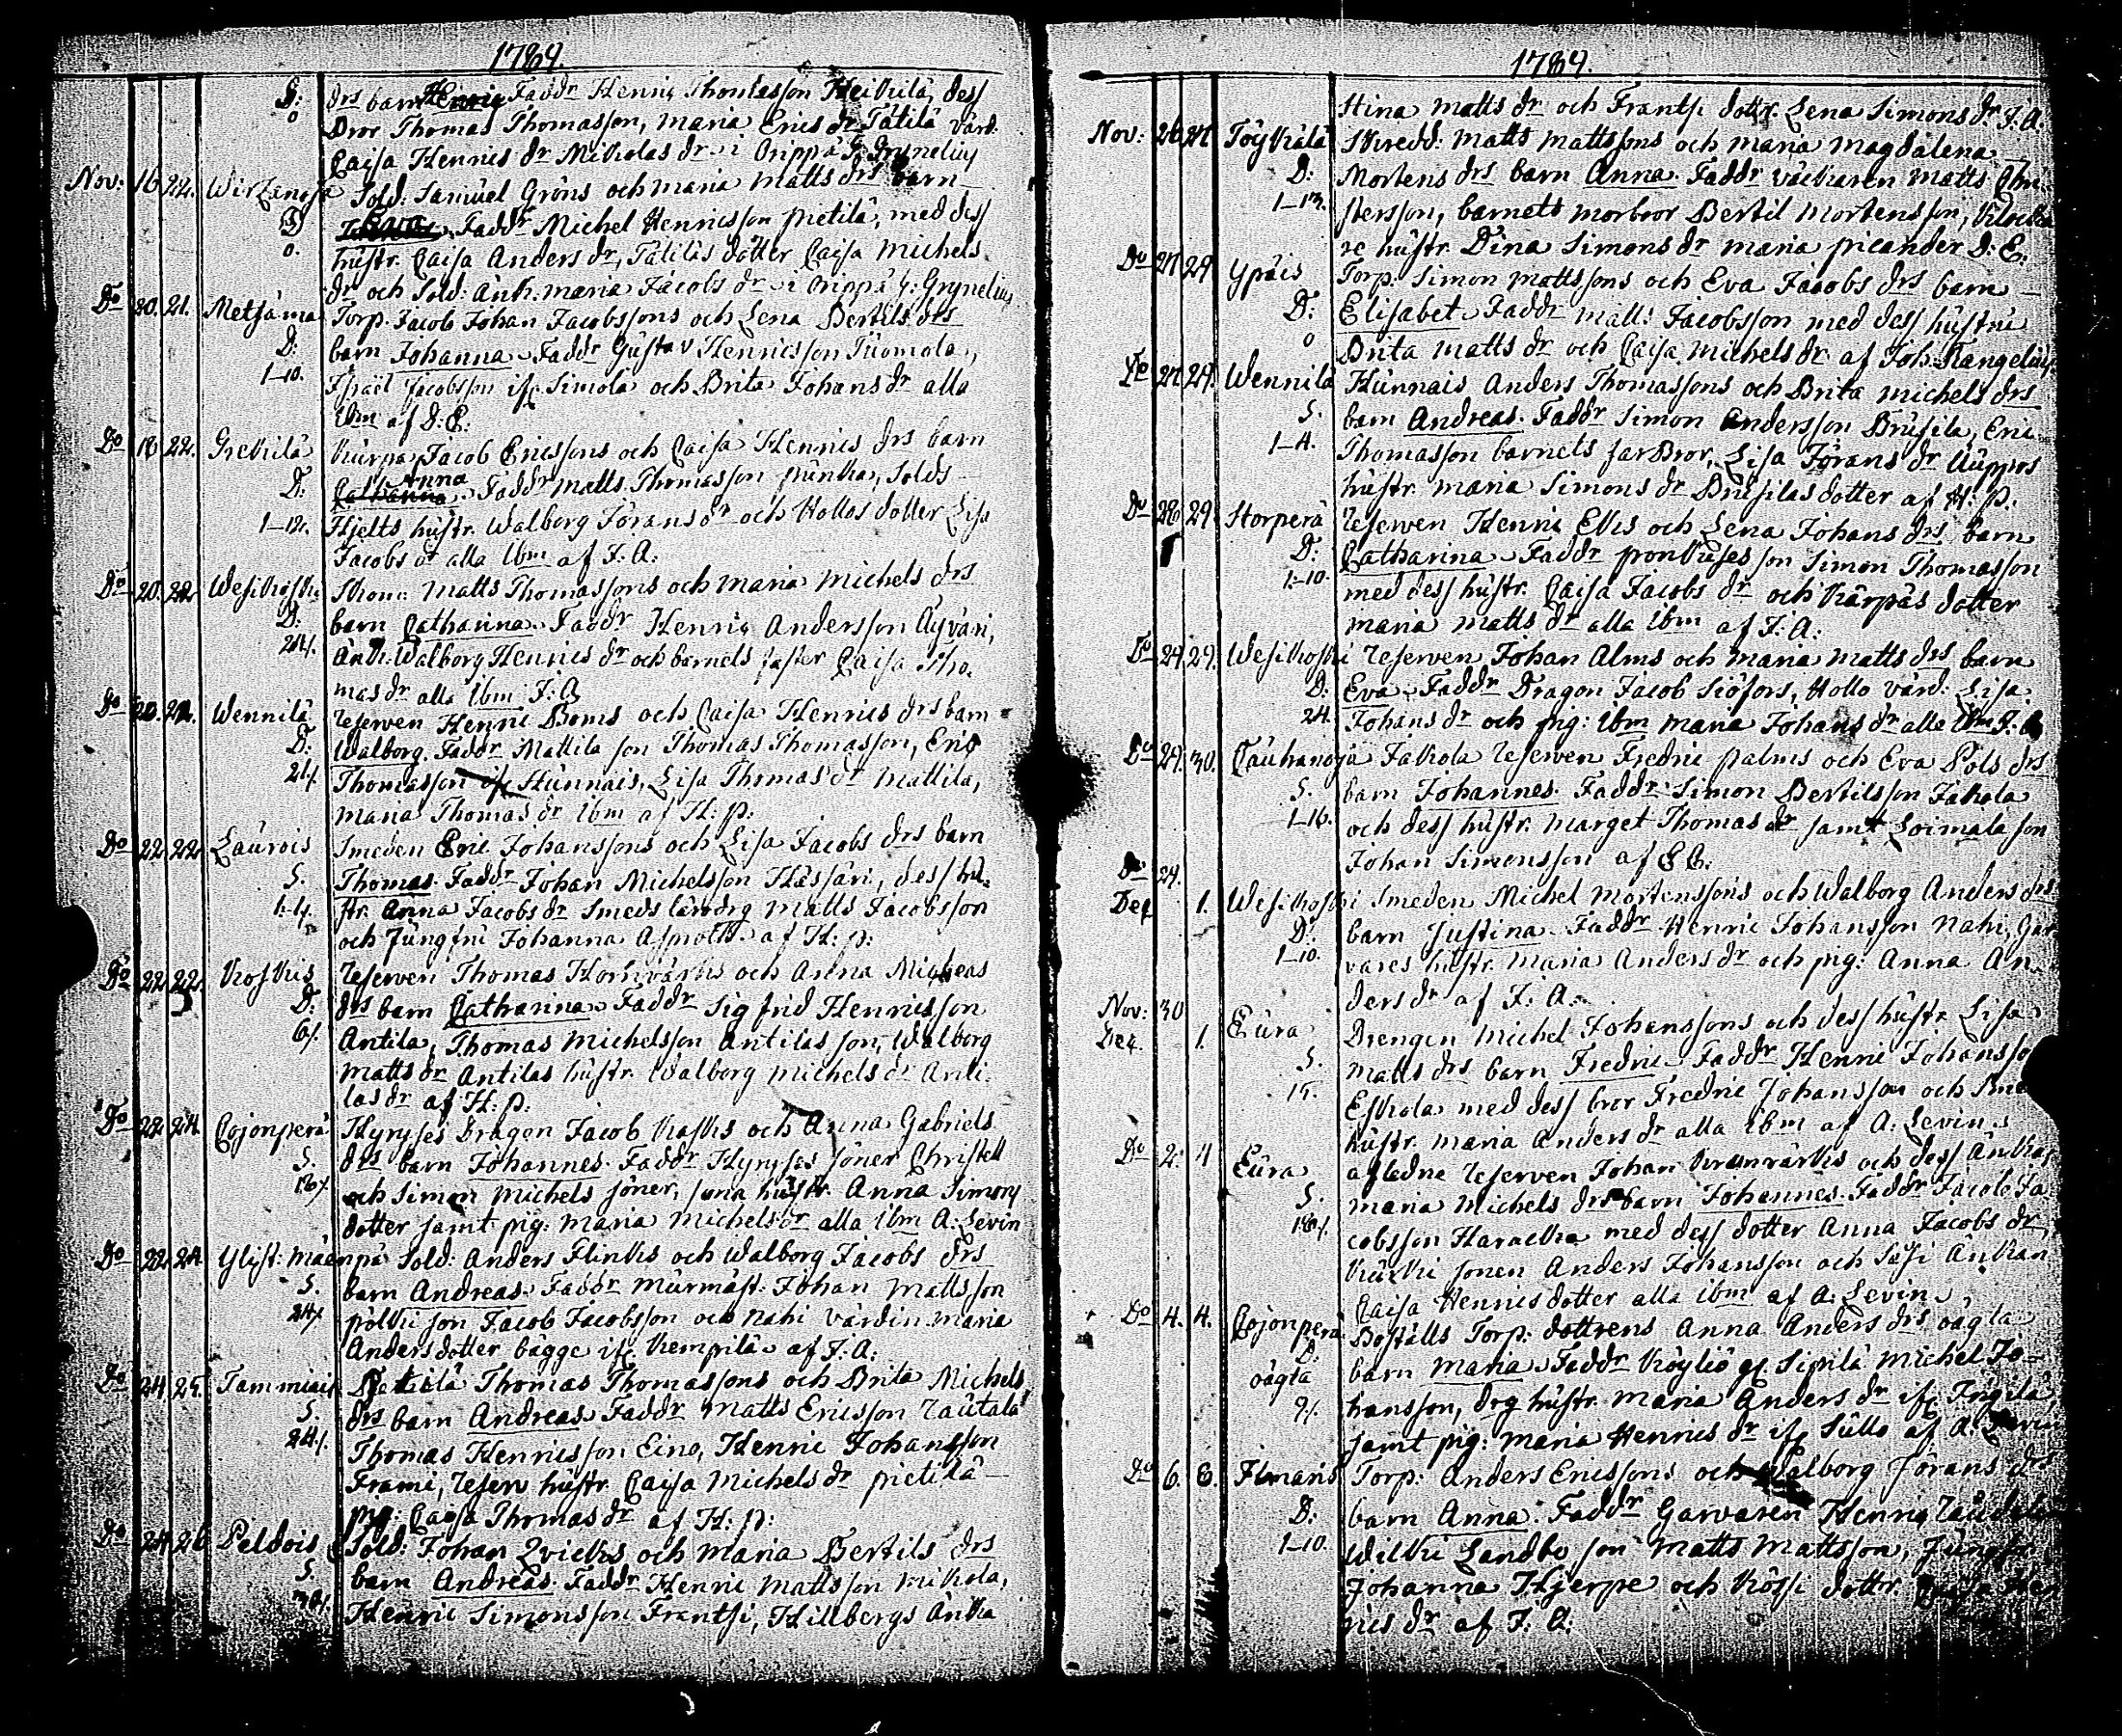 1789.
S: drs barn Henric Faddr Henric Thomasson Heikkilä, dess
o Bror Thomas Thomasson, Maria Erics dr Tätilä värd.
Caisa Henrics dr Mikolas dr i Orippä G: Grynelius
Nov: 16. 22. Wirtzanoja Sold: Samuel Gröns och Maria Matts drs barn
Faddr Michel Henricsson Pietilä, med dess
o. hustr. Caisa Anders dr, Tätiläs dotter Caisa Michels
dr och Sold: Änk: Maria Jacobs dr i Orippä G: Grynelius
Do 20. 21. Metsämä Torp. Jacob Johan Jacobssons och Lena Bertils drs
D: barn Johanna. Faddr Gustav Henricsson Tuomola,
1–10. Israël Jacobsson if: Simola och Brita Johans dr alla
ibm af D: E:
Do 18 22. Grekilä Kurpa Jacob Ericssons och Caisa Henrics drs barn
Anna
D: Catharina. Faddr Matts Thomasson Punka, Solds
1–12. Hjelts hustr. Walborg Jörans dr och Kollos dotter Lisa
Jacobs dr alla ibm af J: A:
Do 20. 22. Wesikoski Skom: Matts Thomassons och Maria Michels drs
D: barn Catharina. Faddr Henric Andersson Äyväri,
24/. Änk: Walborg Henrics dr och barnets faster Caisa Tho-
mas dr alla ibm J: A
Do 20. 22. Wennilä Reserven Henric Boms och Caisa Henrics drs barn
D: Walborg. Faddr Mattila son Thomas Thomasson, Eric
21/. Thomasson if: Hunnais, Lisa Thomas dr Mattila,
Maria Thomas dr ibm af H: P:
Do 22. 22. Laurois Smeden Eric Johanssons och Lisa Jacobs drs barn
S. Thomas. Faddr Johan Michelsson Hässäri, dess hu-
str. Anna Jacobs dr Smeds lärodrg Matts Jacobsson
och Jungfru Johanna Asproth af H: P:
Do 22. 22. Koskis Reserven Thomas Hornvärks och Anna Michels
D: drs barn Catharina. Faddr Sigfrid Henricsson
6/. Antila, Thomas Michelsson Antilas son, Walborg
Matts dr Antilas hustr. Walborg Michels dr Anti-
las dr af H: P:
Do 22. 24. Cojonperä Hyryses Dragon Jacob Kaskis och Anna Gabriels
S. drs barn Johannes. Faddr Hyryses söner Christer
18/. och Simon Michels söner, sona hustr. Anna Simons
dotter samt pig: Maria Michels dr alla ibm A: Levin
Do 22. 24. Ylist: Mäenpä Sold: Anders Flinks och Walborg Jacobs drs
S. barn Andreas. Faddr Murmäst. Johan Mattsson
24/. Pölki son Jacob Jacobsson och Nahi värdin Maria
Andersdotter bägge if: Kempilä af J: A:
Do 24 25. Tammiais Pietilä Thomas Thomassons och Brita Michels
S. drs barn Andreas. Faddr Matts Ericsson Rautala
24/. Thomas Henricsson Eino, Henric Johansson
Frami, Reserv hustr. Caisa Michels dr Pietilä
pig: Caisa Thomas dr af H: P:
Do 24 26 Peldois Sold: Johan Qvicks och Maria Bertils drs
S. barn Andreas. Faddr Henric Mattsson Mikola,
Henric Simonsson Frantsi, Hillbergs änka
1789.
Stina Matts dr och Frantsi dottr. Lena Simons dr J: A.
Nov: 26 27 Töykälä Skredd: Matts Mattssons och Maria Magdalena
D: Mortens drs barn Anna. Faddr väckaren Matts Chri-
1–13. stersson, barnets morbror Bertil Mortensson, Klocka-
re hustr. Dina Simons dr Maria Picander D: E.
Do 27 29 Ypäis Torp: Simon Mattssons och Eva Jacobs drs barn
D: Elisabet. Faddr Matt: Jacobsson med dess hustru
o Brita Matts dr och Caisa Michels dr af Joh: Rangelius
Do 27 29. Wennilä Hunnais Anders Thomassons och Brita Michels drs
S. barn Andreas. Faddr Simon Andersson Brusila, Eric
1–4. Thomasson barnets farbror, Lisa Jörans dr Auppos
hustr. Maria Simons dr Brusilas dotter af H: P:
Do 28 29 Storperä Reserven Henric Ekis och Lena Johans drs barn
D: Catharina. Faddr Pronkuses son Simon Thomasson
1–10. med dess hustr. Caisa Jacobs dr och Kärpäs dotter
Maria Matts dr alla ibm af J: A:
Do 29 29. Wesikoski Reserven Johan Alms och Maria Matts drs barn
D: Eva. Faddr Dragon Jacob Siöfors, Hollo värd: Lisa
24. Johans dr och pig: ibm Maria Johans dr alla ibm J: A
Do 29. 30. Cauhanoja Jakola Reserven Fredric Palms och Eva Pols drs
S. barn Johannes. Faddr Simon Bertilsson Jakola
1–16. och dess hustr. Marget Thomas dr samt Loimala son
Johan Simonsson af E E:
Do 29.
Dec 1. Wesikoski Smeden Michel Mortenssons och Walborg Anders drs
D: barn Justina. Faddr Henric Johansson Nahi, Gar-
1–10. vares hustr. Maria Anders dr och pig: Anna An-
ders dr af J: A:
Nov: 30
Dec. 1. Eura Drengen Michel Johanssons och dess hustr. Lisa
S. Matts drs barn Fredric. Faddr Henric Johansson
15. Eskola med dess bror Fredric Johansson och
hustr. Maria Anders dr alla ibm af A: Levin.
Do 2. 4 Eura aflednе Reserven Johan Kramvärks och dess Änka
S. Maria Michels drs barn Johannes. Faddr Jacob Ja-
18/. cobsson Haracka med dess dotter Anna Jacobs dr,
Kuki sonen Anders Johansson och Säsi Änkan
Caisa Henricsdotter alla ibm af A: Levin.
Do 4. 4. Cojonperä Boställs Torp: dottrens Anna Anders drs oägta
D: barn Maria. Faddr Köyliö gl. Sipilä Michel Jo-
oägta
9/. hansson, drg hustr. Maria Anders dr if: Ingilä,
samt pig: Maria Henrics dr if: Sullo af A: Levin
Do 6. 6. Ilmaris Torp: Anders Ericssons och Walborg Jörans drs
D: barn Anna. Faddr Garvaren Henric
1–10. Wilki Landbo son Matts Mattsson, Jungfru
Johanna Hjerpe och Kössi dottr. Hen-
rics dr af J: A: